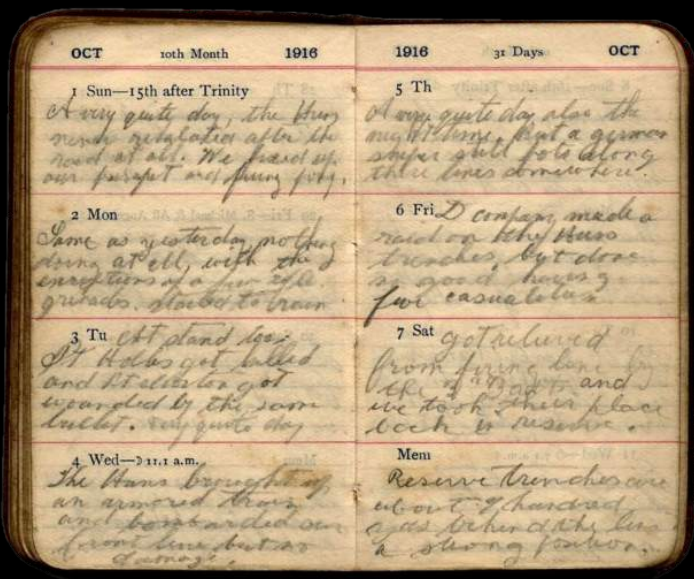 OCT 10th Month 1916
1 Sun—15th after Trinity
A very quite day, the Huns
never retaliated after the
raid at all. We fixed up
our parapet and firing
2 Mon
Same as yesterday nothing
doing at all, with the
exceptions of a few rifle
grenades. started to train
3 Tu At stand too
Lt got killed
and Lt got
wounded by the same
bullet. Very quite day
4 Wed—☽ 11.1 a.m.
The Huns brought up
an armored train
and bombarded our
front line but no
damage.
1916 31 Days OCT
5 Th
A very quite day also the
night time, but a german
sniper still pots along
these lines somewhere.
6 Fri D company made a
raid on the Huns
trenches, but done
no good having
few casualties
7 Sat got relieved
from firing line by
the and
we took their place
back in reserve.
Mem
Reserve trenches are
about hundred
yds behind the line
a strong position.